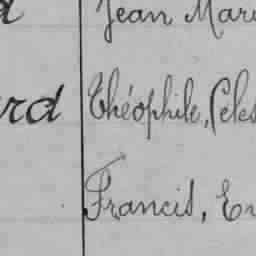 Jean Mari
rd Théophile, Celes
Francis, En